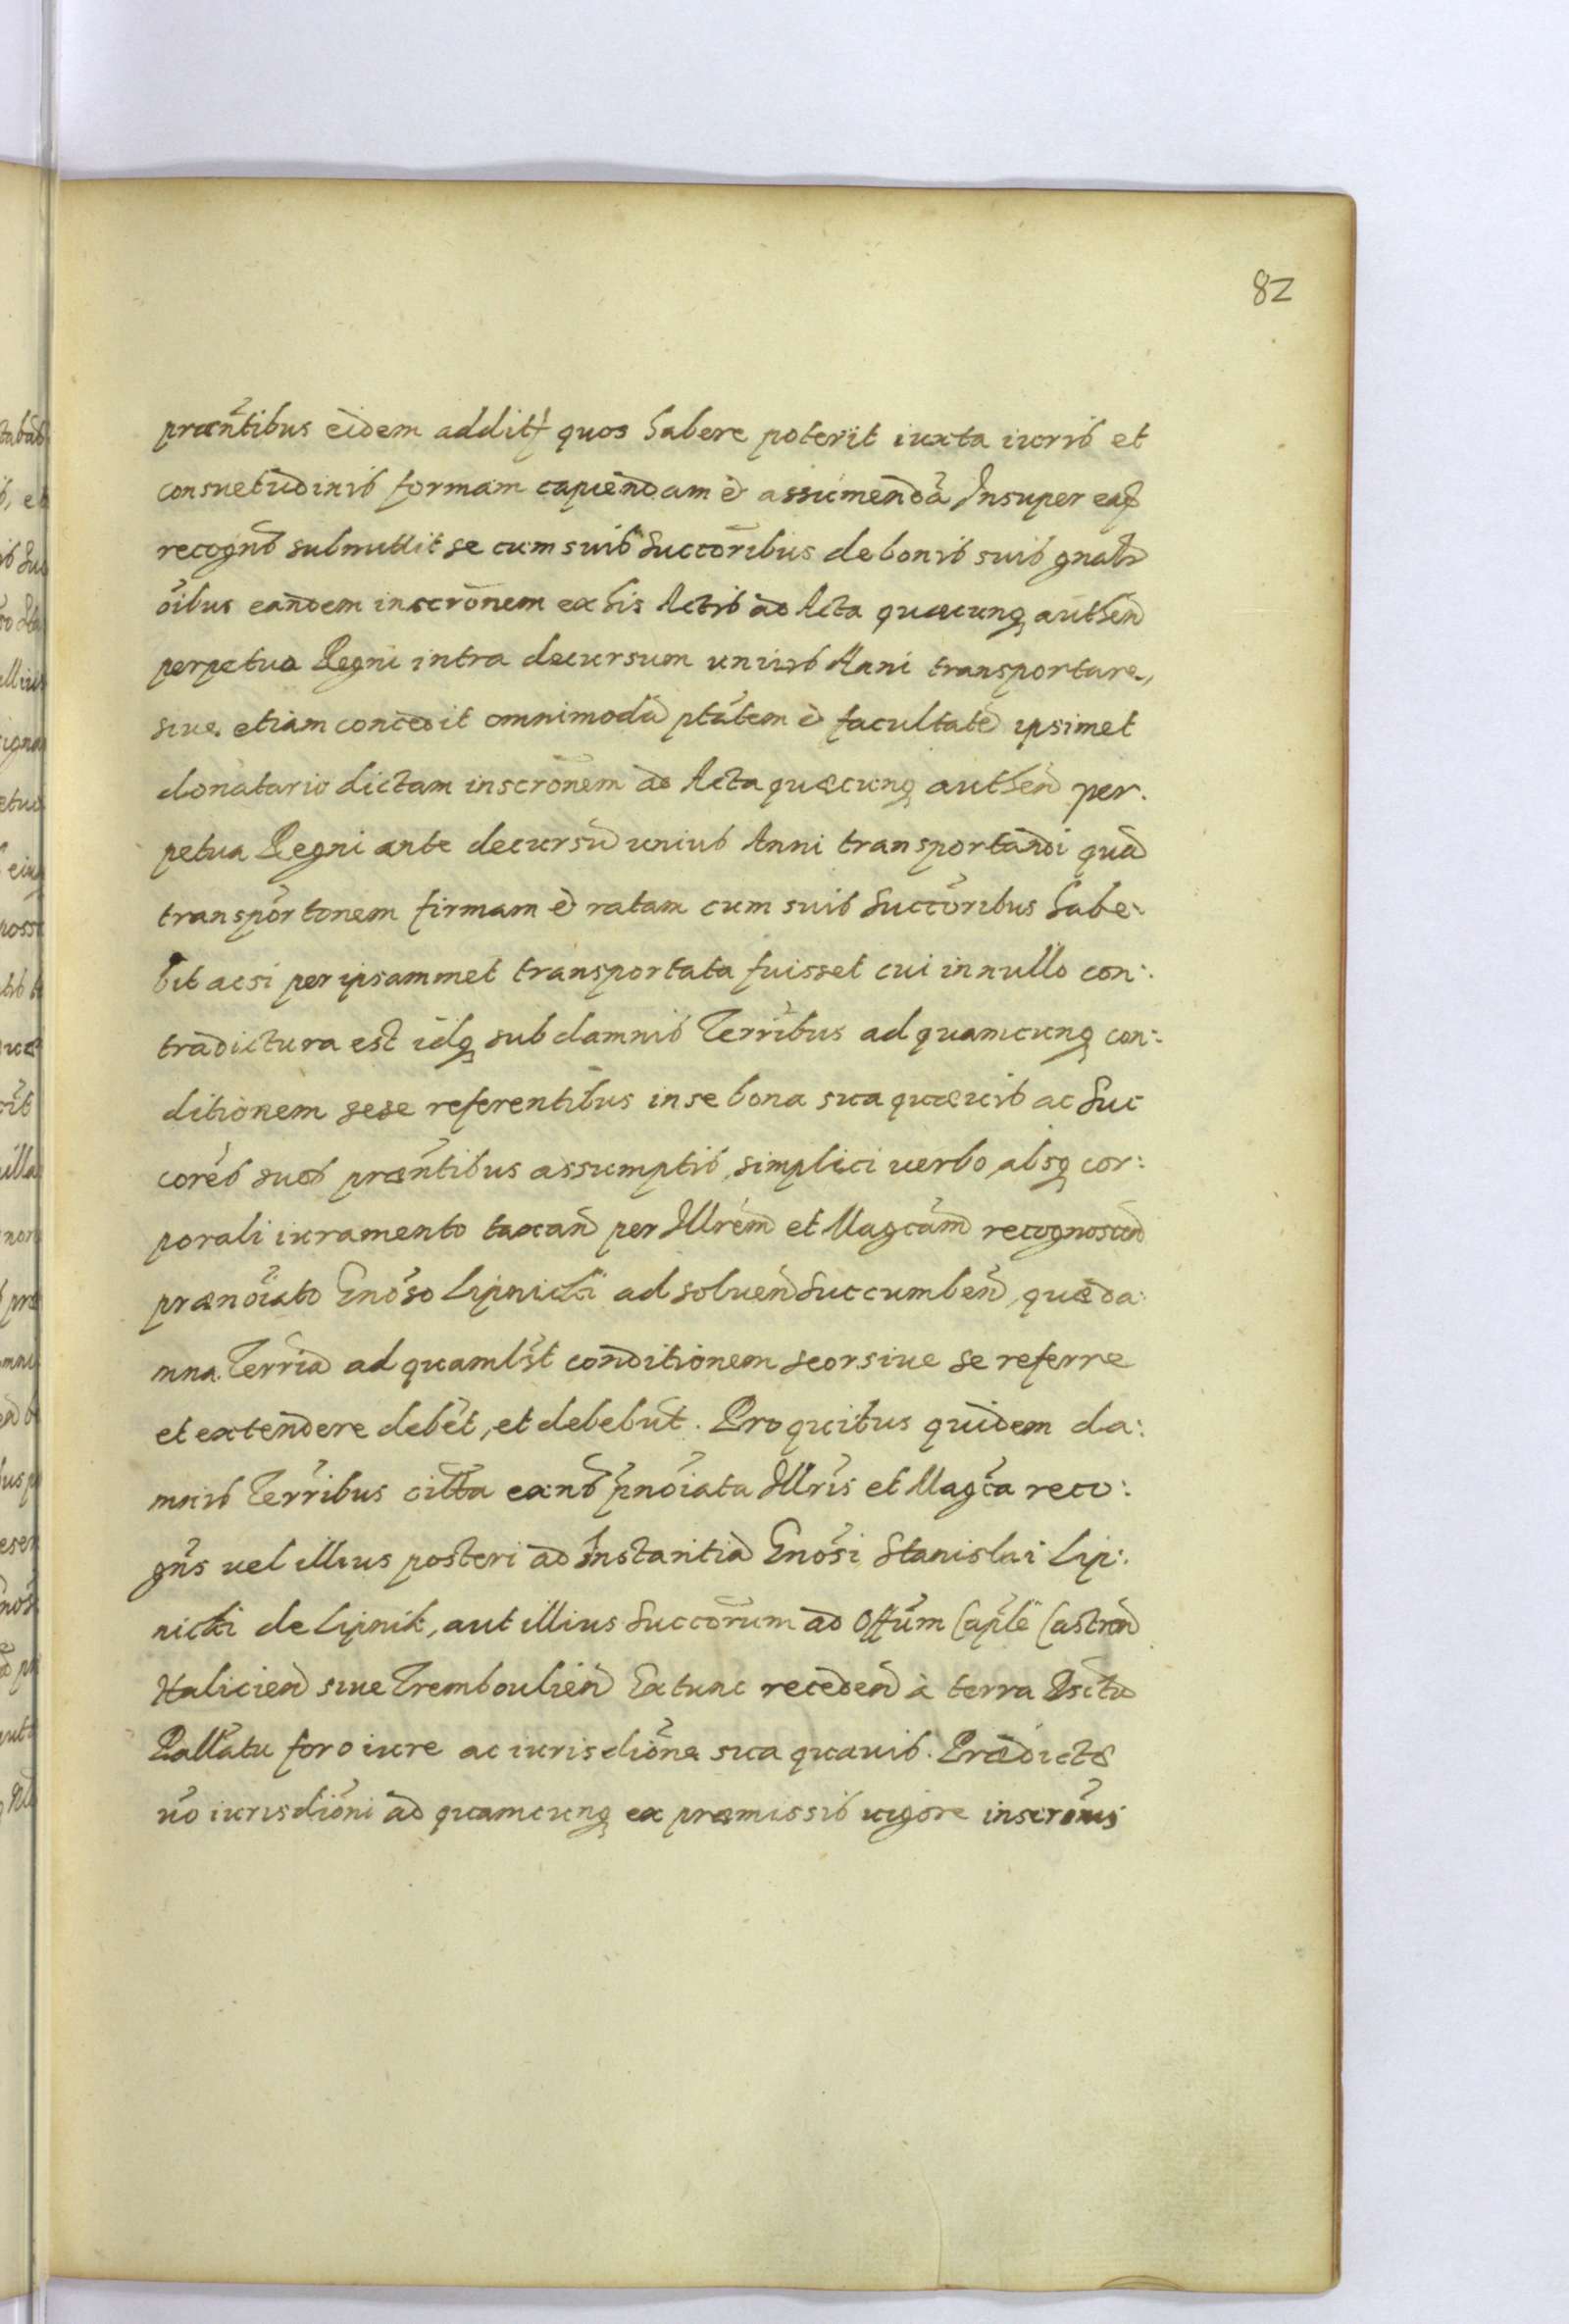 82
præntibus eidem addit quos habere poterit iuxta iuris et
consuetudinis formam capiendam et assumendã Insuper ead
recognos submittit se cum suis Succoribus de bonis suis gnalr
oibus eandem inscronem ex his Actis ad Acta quæcunq authen
perpetua Regni intra decursum unius Anni transportare,
siue etiam concedit omnimodã ptatem et facultatẽ ipsimet
donatario dictam inscronem ad Acta quæcunq authen per.
petua Regni ante decursũ unius Anni transportandi quã
transportonem firmam et ratam cum suis Succoribus habe-
bit acsi per ipsammet transportata fuisset cui in nullo con:
tradictura est idq sub damnis Terribus ad quamcunq con:
ditionem sese referentibus in se bona sua quævis ac Suc
cores suos præntibus assumptis, simplici uerbo absq cor:
porali iuramento taxan per Illrem et Magcam recognoscen
prænoiato Gnoso Lipnicki ad soluen Succumben, quæ da:
mna Terria ad quamlbt conditionem seorsiue se referre
et extendere debet, et debebunt. Pro quibus quidem da:
mnis Terribus citta exns pnoiata Illris et Magca reco:
gns uel illius posteri ad Instantiã Gnosi Stanislai Lip:
nicki de Lipnik, aut illius Succorum ad Offum Caple Castren
Haliciens siue Trembouliens Extunc receden à terra Dsctu
Pallatu foro iure ac iurisdione sua quauis. Prædictæ
uo iurisdioni ad quamcunq ex præmissis uigore inscronis